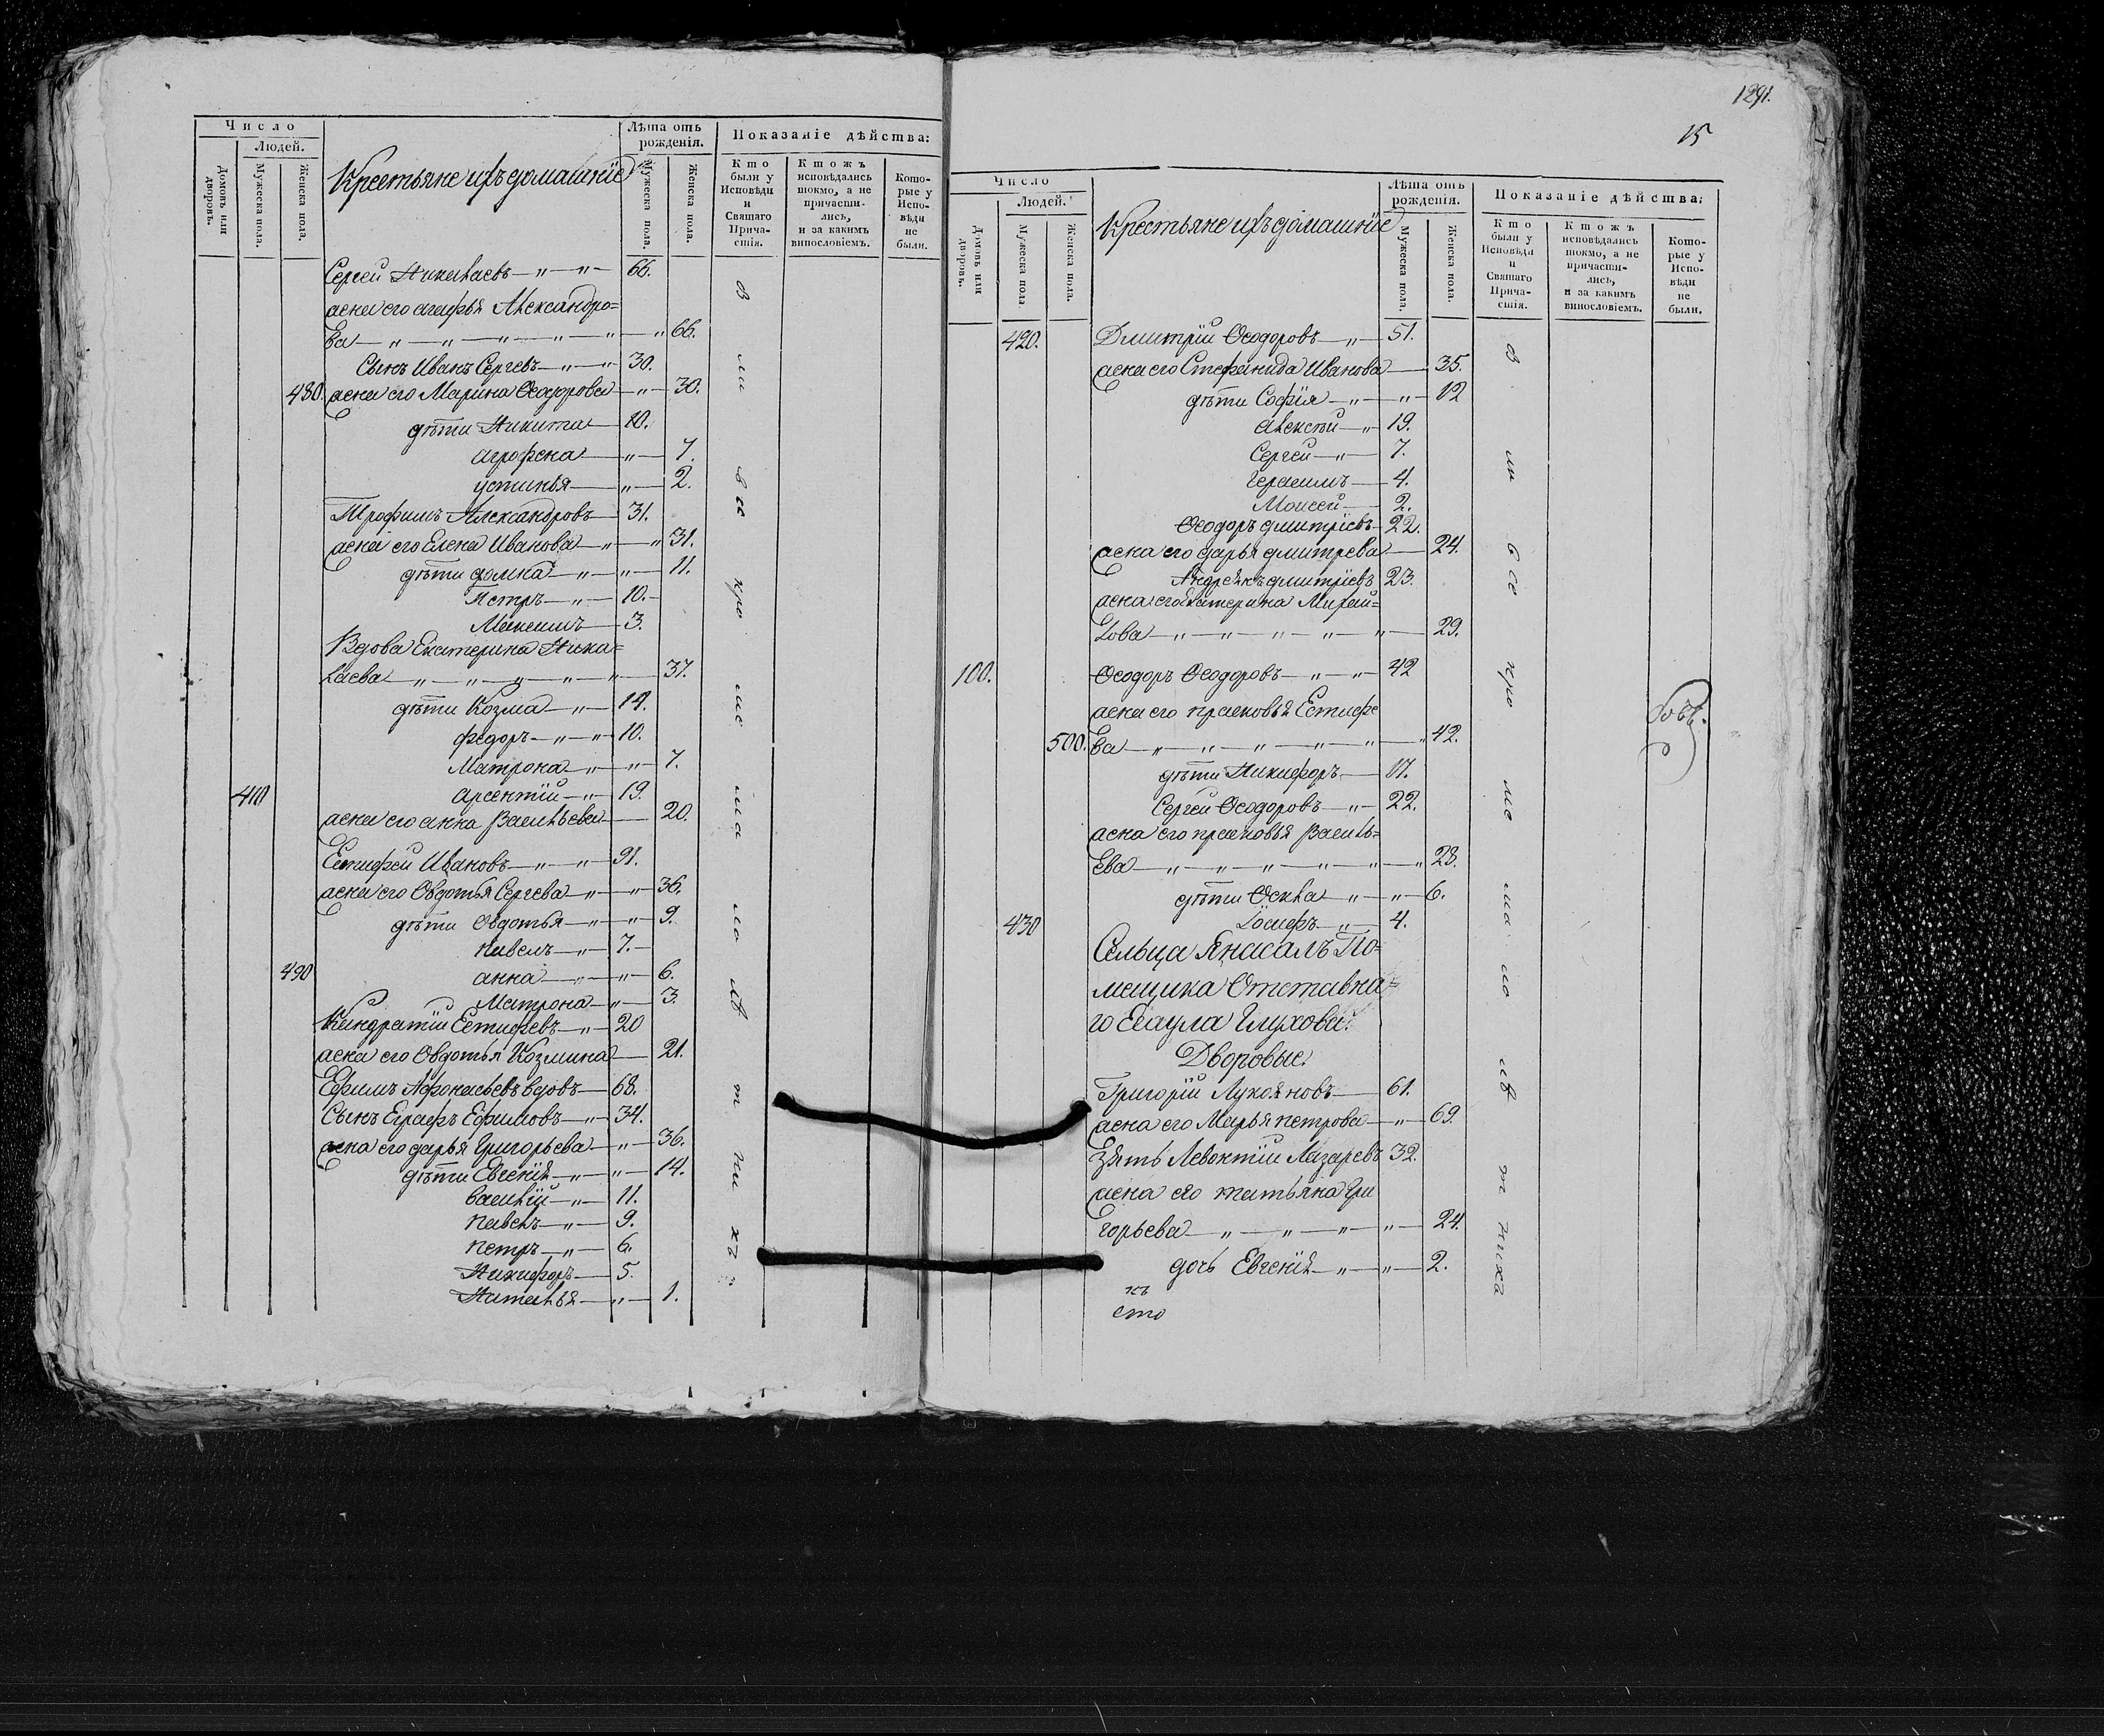 Число
Людей.
Домовъ или дворовъ.
Мужеска пола.
Женска пола.
Крестьяне ихъ домашнїе
Лѣта отъ рожденія.
Мужеска пола.
Женска пола.
Показаніе дѣйства:
Кто были у Исповѣди и Святаго Причастія.
Ктожъ исповѣдались токмо, а не причастились, и за какимъ винословіемъ.
Которые у Исповѣди не были.
Сергей Николаевъ — „ — „ — 66.
жена его агафья Александро=
ва — „ — „ — „ — „ — „ — „ 66.
Сынъ Иванъ Сергевъ — „ — „ 30.
480. жена его Марина Ѳеодорова — „ — 30.
дѣти Никита — 10.
агрофена — „ — 7.
устинья — „ — 2.
Трофимъ Александровъ — 31.
жена его Елена Иванова — „ — „ 31.
дѣти домна — „ — „ — 11.
Петръ — „ — 10. —
Максимъ — 3.
Вдова Екатерина Нико=
лаева — „ — „ — „ — „ — „ — 37.
дѣти Козма — „ — 14.
федоръ — „ — „ 10.
Матрона — „ — „ — 7.
410 арсентїй — „ — 19.
жена его анна Васильева — 20.
Естифей Ивановъ — „ — „ — 91.
жена его Овдотья Сергева — „ — „ 36.
дѣти Овдотья — „ — „ — 9.
павелъ — „ — 7. —
490 анна — „ — „ — 6.
Матрона — „ — 3.
Кондратїй Естифеевъ — „ — 20
жена его Овдотья Козмина — 21.
Ефимъ Афонасьевъ вдовъ — 68.
Сынъ Еграфъ Ефимовъ — „ — 34.
жена его дарья Григорьева — „ — 36.
дѣти Евгенїя — „ — „ — 14.
василїй — „ — 11.
павелъ — „ — 9.
петръ — „ — 6.
Никифоръ — 5.
Наталья — „ — 1.
1291.
15
Число
Людей.
Домовъ или дворовъ.
Мужеска пола
Женска пола.
Крестьяне ихъ домашнїе
Лѣта отъ рожденія.
Мужеска пола.
Женска пола.
Показаніе дѣйства:
Кто были у Исповѣди и Святаго Причастія.
Ктожъ исповѣдались токмо, а не причастились, и за какимъ винословіемъ.
Которые у Исповѣди не были.
420. Дмитрїй Ѳеодоровъ — „ — 51.
жена его Стефанида Иванова — 35.
дѣти Софїя — „ — „ — 12
Алексѣй — „ 19.
Сергей — „ — 7.
Герасимъ — 4.
Моисей — 2.
Ѳеодоръ дмитрїевъ — 22.
жена его дарья дмитрева — 24.
Андреянъ дмитрїевъ 23.
жена его Екатерина Михай=
лова — „ — „ — „ — „ — „ — 29.
100. Ѳеодоръ Ѳеодоровъ — „ — „ — 42
жена его прасковья Естифе
500. ва — „ — „ — „ — „ — „ — „ 42.
дѣти Никифоръ — 17.
Сергей Ѳеодоровъ — „ — 22.
жена его прасковья Василь=
Ева — „ — „ — „ — „ — „ — „ 28.
дѣти Ѳекла — „ — „ — 6.
430 Іосифъ — „ — 4.
Сельца Янасалъ По=
мещика Отставна=
го Есаула Глухова.
Дворовые.
Григорїй Лукояновъ — 61.
жена его Марья петрова — „ — 69.
Зять Левонтїй Лазаревъ 32.
жена его татьяна Гри
горьева — „ — „ — „ — „ — 24.
дочь Евгенїя — „ — „ — 2.